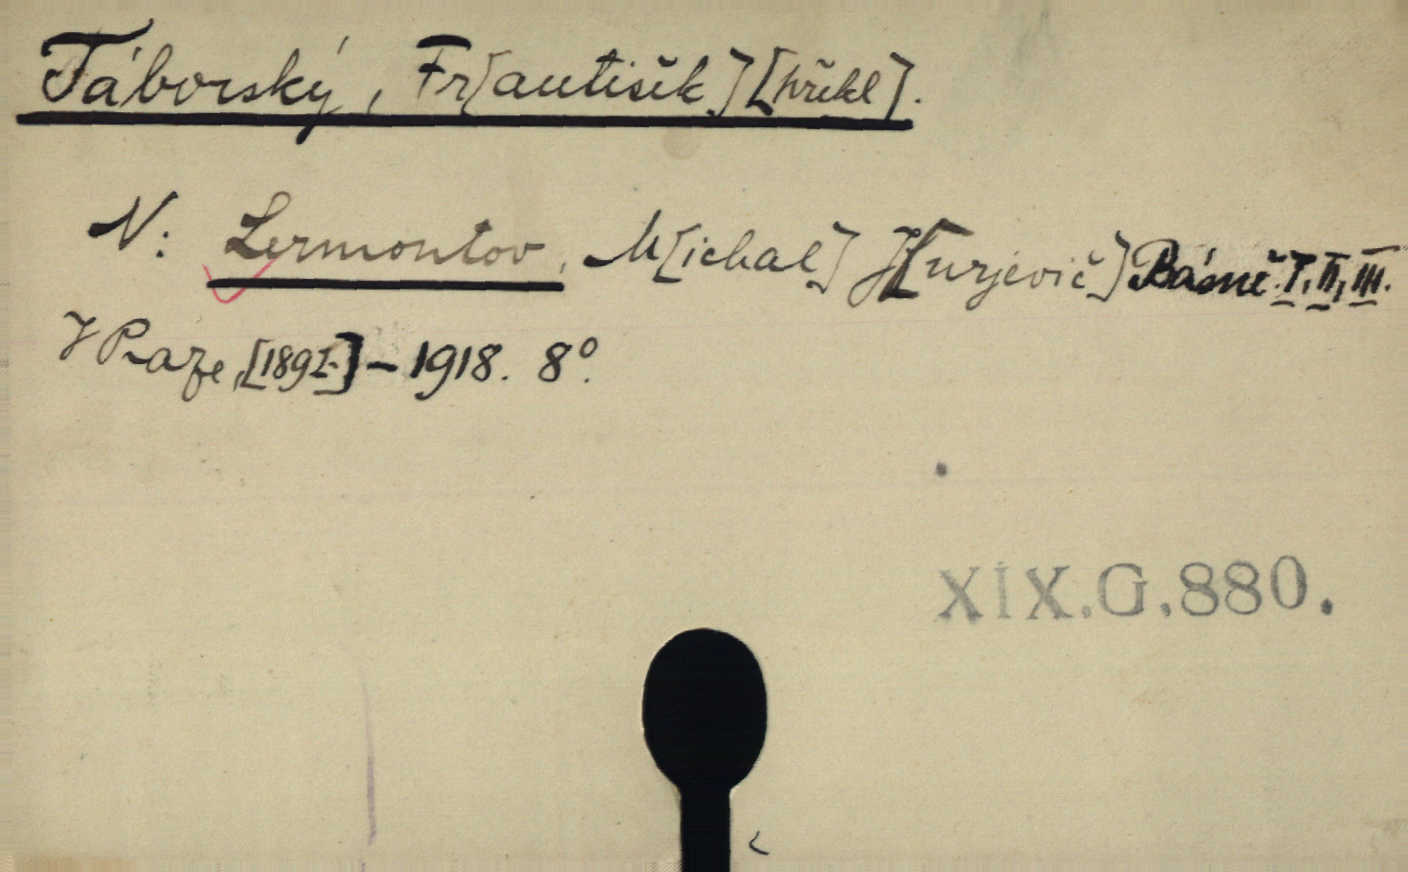 Táborský, Fr[antišek] [překl].
V: Lermontov, M[ichal] J[urjevič] Básně. I, II, III.
V Praze, [1892]-1918. 8°.
XIX.G.880.